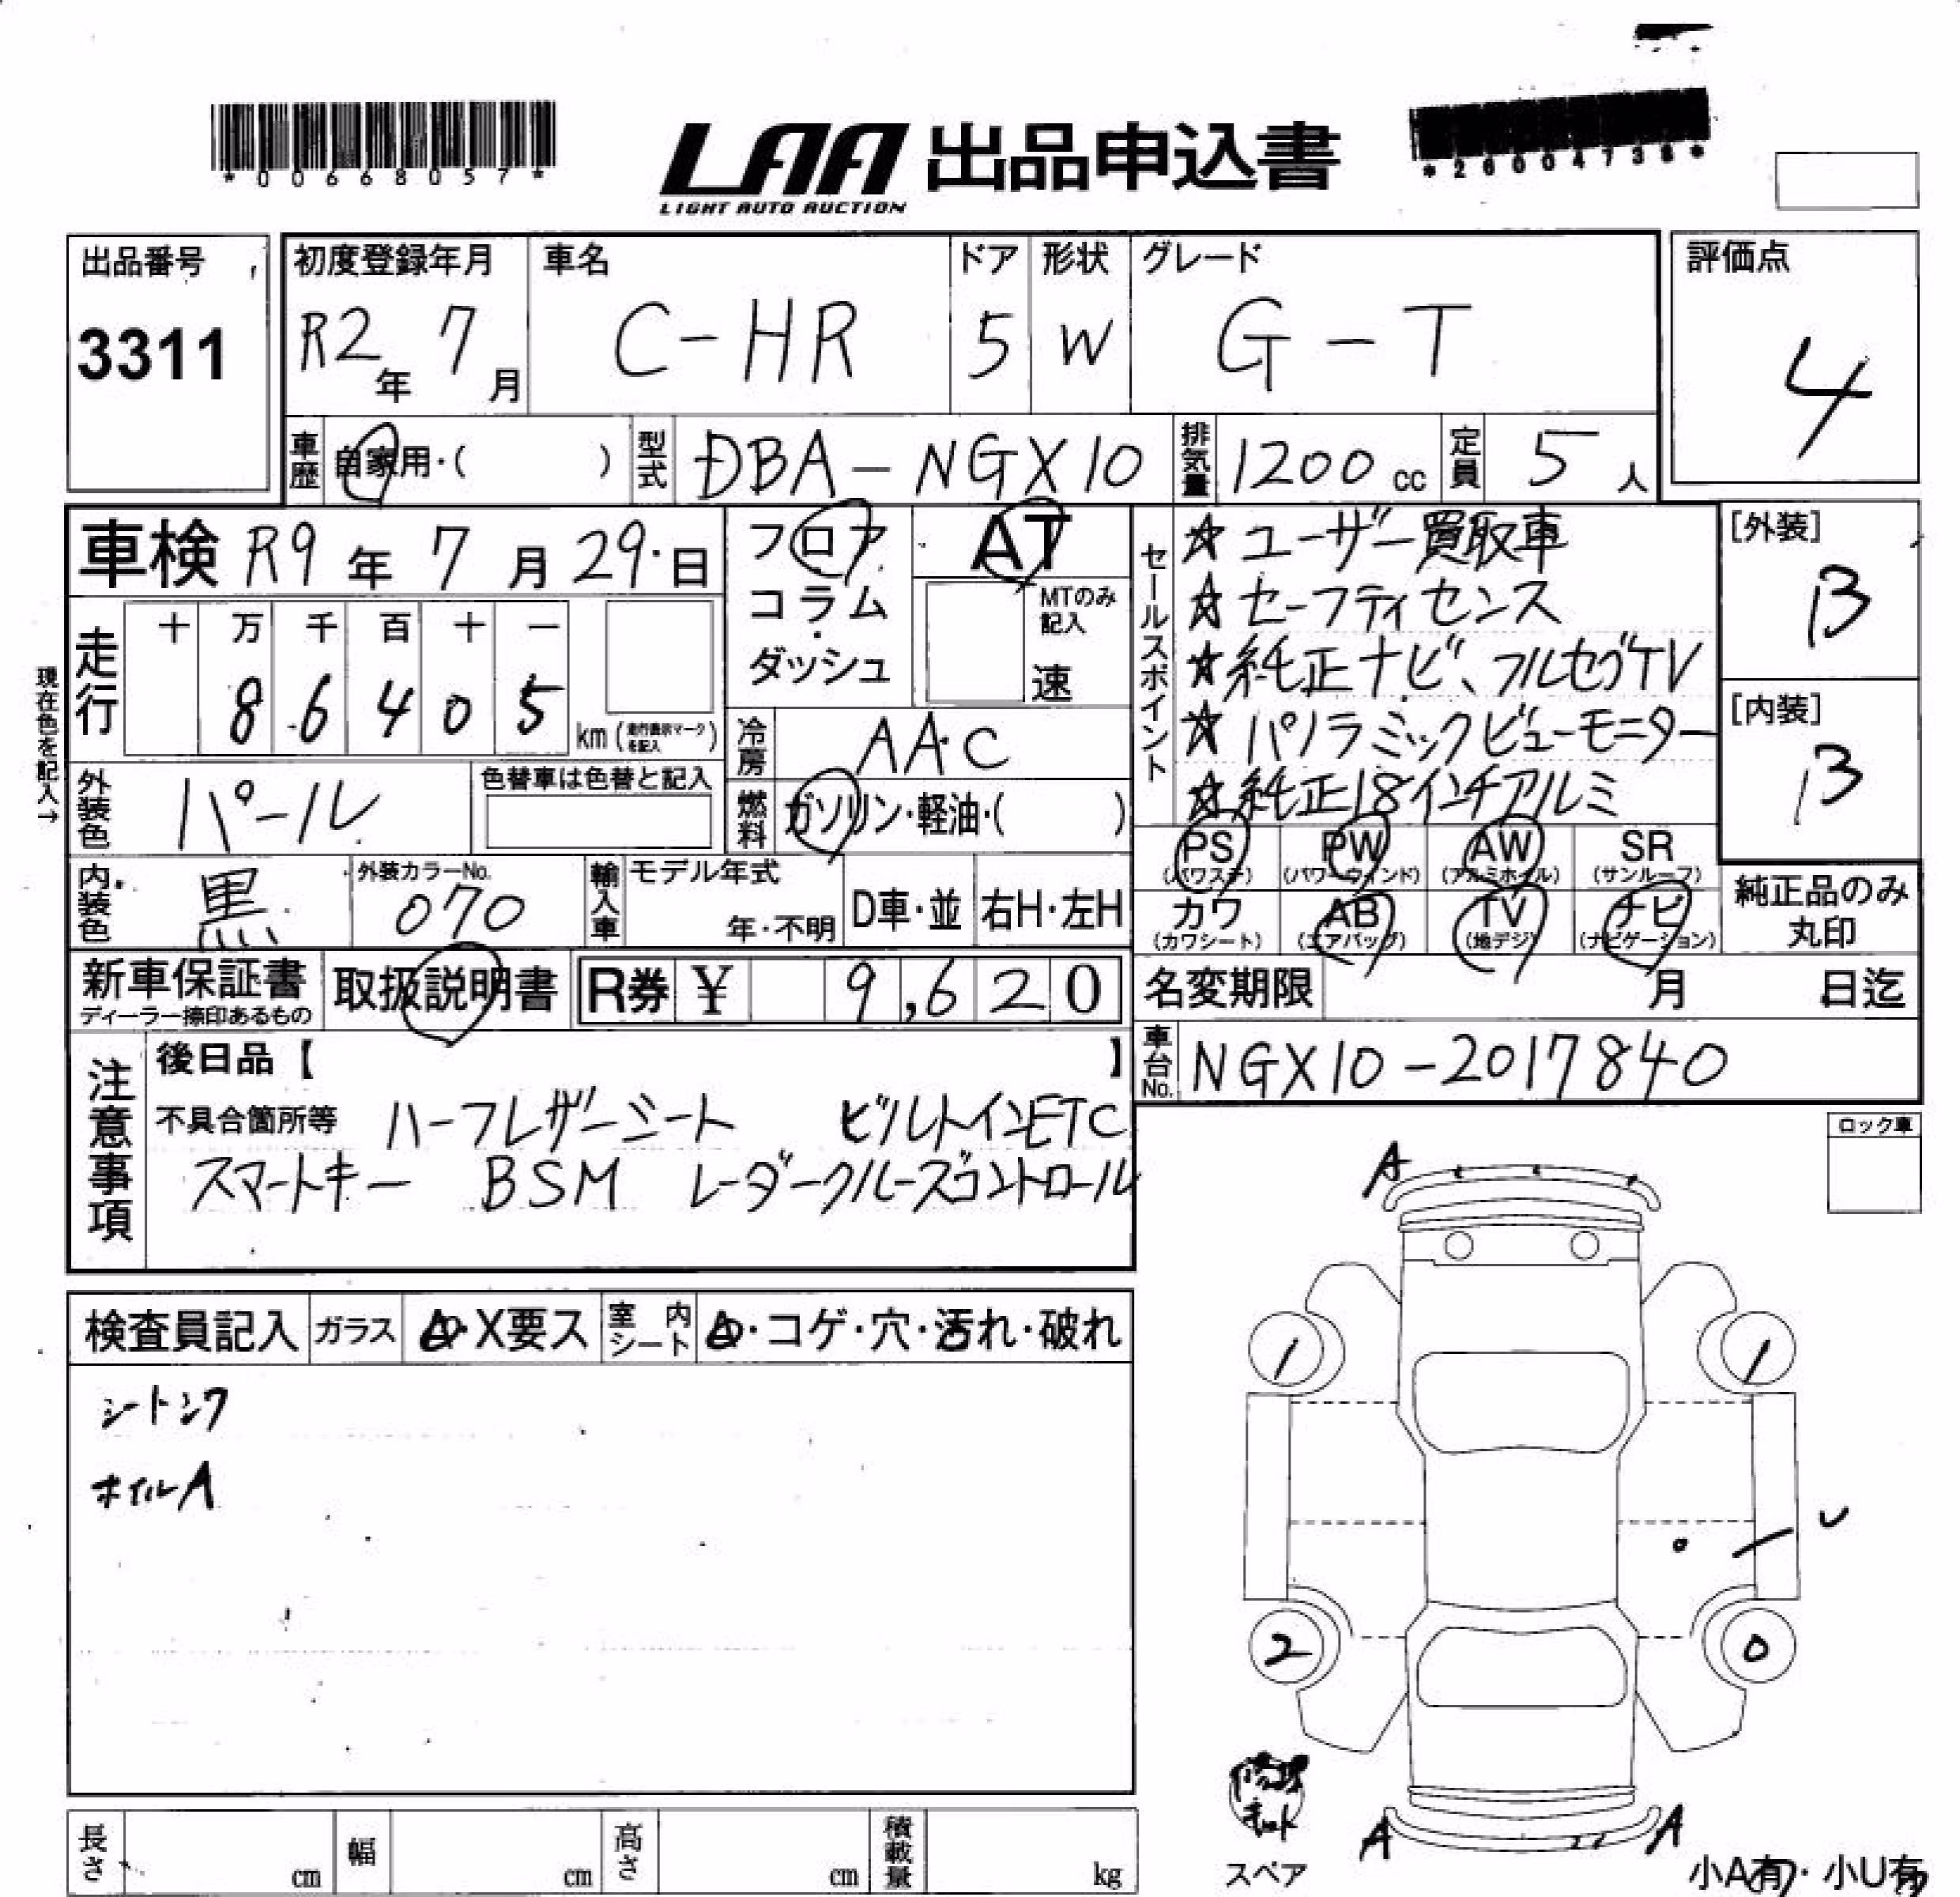 *00668057*
LAA 出品申込書
LIGHT AUTO AUCTION
*26004738*
出品番号
3311
初度登録年月
R2年 7月
車名
C-HR
ドア
5
形状
W
グレード
G-T
評価点
4
車歴 自家用・( )
型式 DBA-NGX10
排気量 1200 cc
定員 5 人
車検 R9年 7月 29日
フロア
コラム
・
ダッシュ
AT
MTのみ
記入
速
セールスポイント
☆ ユーザー買取車
☆ セーフティセンス
☆ 純正ナビ、フルセグTV
☆ パノラミックビューモニター
☆ 純正18インチアルミ
[外装]
B
[内装]
B
現在色を記入→
走行
十 万 千 百 十 一
8 6 4 0 5
km (走行表示マークを記入)
冷房 AAC
燃料 ガソリン・軽油・( )
外装色 パール
色替車は色替と記入
内装色 黒
外装カラーNo.
070
輸入車
モデル年式
年・不明
D車・並 右H・左H
PS
(パワステ)
PW
(パワーウィンド)
AW
(アルミホイル)
SR
(サンルーフ)
カワ
(カワシート)
AB
(エアバッグ)
TV
(地デジ)
ナビ
(ナビゲーション)
純正品のみ
丸印
新車保証書
ディーラー捺印あるもの
取扱説明書
R券 ¥ 9,620
名変期限 月 日迄
車台No. NGX10-2017840
注意事項
後日品【 】
不具合箇所等 ハーフレザーシート ビルトインETC
スマートキー BSM レーダークルーズコントロール
ロック車
検査員記入 ガラス A・X要ス 室内シート A・コゲ・穴・汚れ・破れ
シートシワ
ホイルA
A
1
1
U
2
0
修理
キット
スペア
A
A
小A有・小U有
長さ cm
幅 cm
高さ cm
積載量 kg